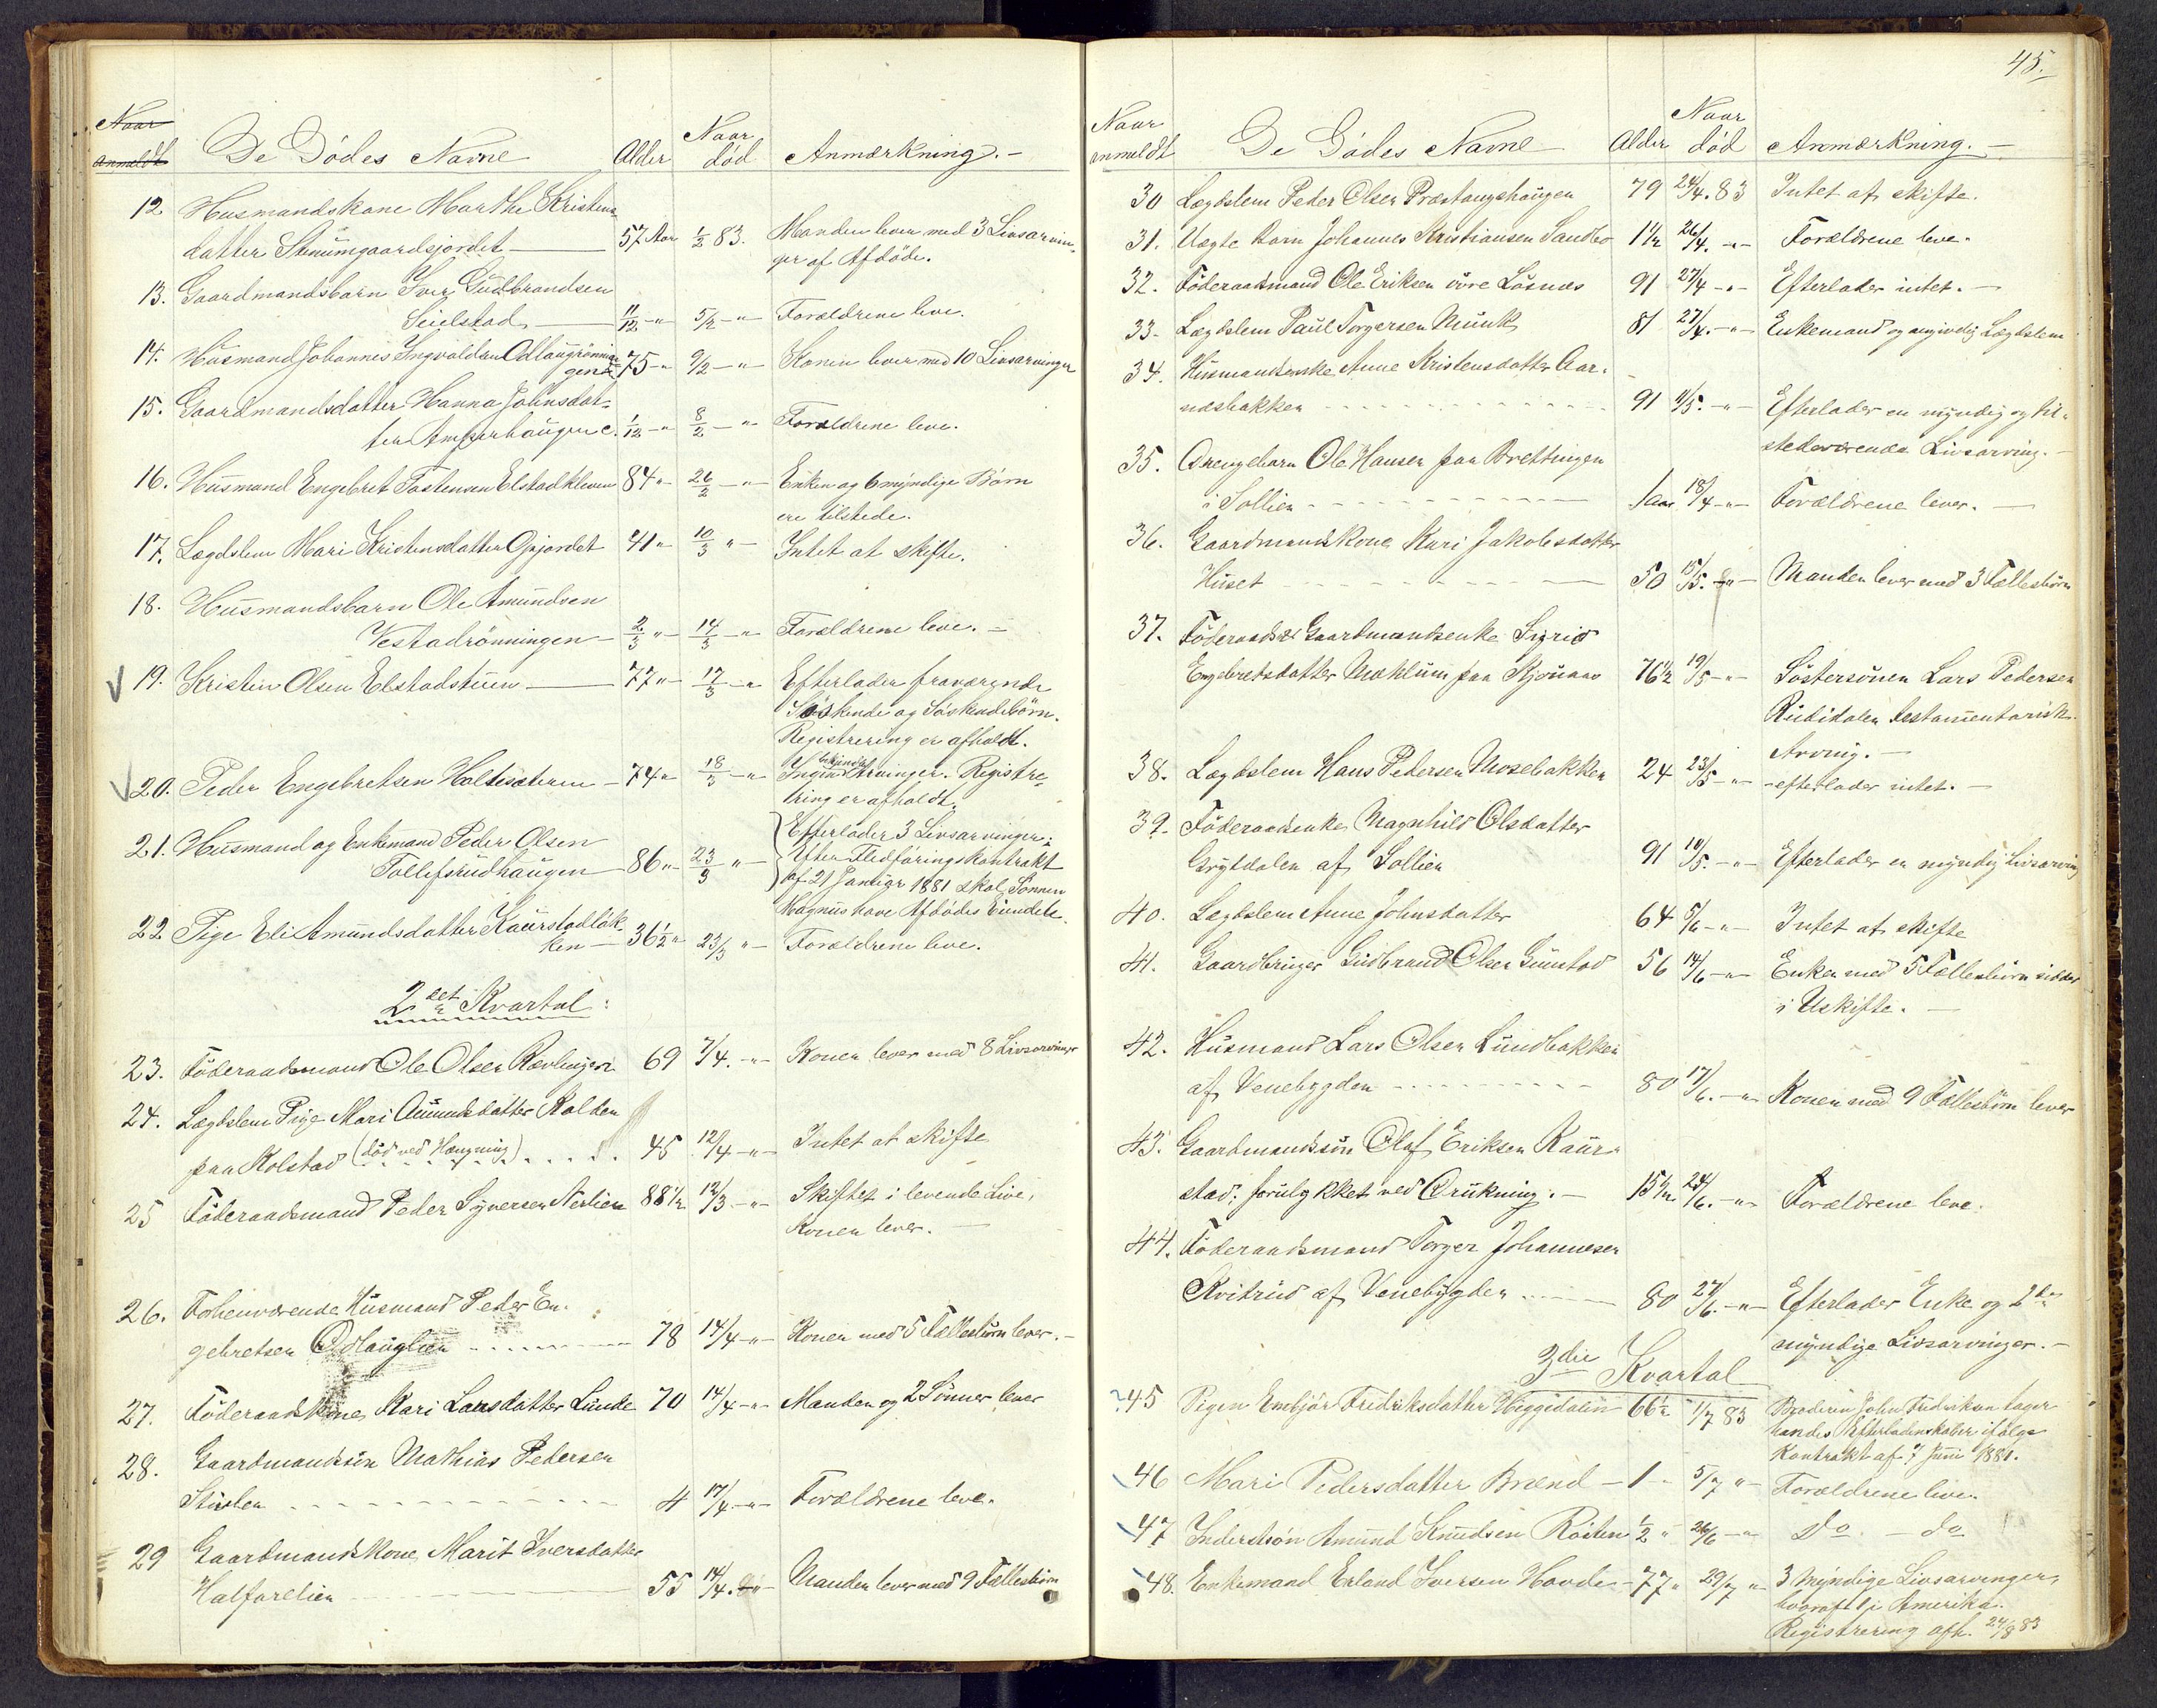 Naar
anmeldt De Dödes Navne Alder Naar död Anmærkning.-
12 Husmandskone Marthe Kristens
datter Stenumgaardsjordet 57 Aar 1/2 83. Manden lever med 3 Livsarvin-
ger af Afdöde.
13. Gaardmandsbarn Iver Gudbrandsen
Seielstad 11/12 -"- 5/2 -"- Forældrene leve.
14. Husmand Johannes Ingvoldsen Odlaugrönnin
gen 75 -"- 9/2 -"- Konen lever med 10 Livsarvinger
15. Gaardmandsdatter Hanna Johnsdat-
ter Amperhaugen e. 1/12 -"- 8/2 -"- Forældrene leve.
16. Husmand Engebret Tostensen Elstadkleven 84 -"- 26/2 -"- Enken og 6 myndige Börn
ere tilstede.
17. Lægdslem Mari Kristensdatter Opjordet 41 " 10/3 " - Intet at skifte.
18. Husmandsbarn Ole Amundsen
Vestadrönningen 2/3 " - 14/3 -"- Forældrene leve. -
19. Kristen Olsen Elstadstuen 77 " - 17/3 -"- Efterlader fraværende
Söskende og Söskendebörn.
Registrering er afholdt.
20. Peder Engebretsen Holtesæteren - 74 " 18/3 -"- Ingen bekjendte Arvinger. Registre-
ring er afholdt.
21. Husmand og Enkemand Peder Olsen
Tollefsrudhaugen 86 " - 23/3 " - Efterlader 3 Livsarvinger;
Efter Fledföringskontrakt
af 21 Januar 1881 skal Sönnen
Magnus have Afdödes Eiendele.
22 Pige Eli Amundsdatter Kaurstadlök-
ken 36 1/2 " 23/3 " - Forældrene leve.
2det Kvartal:
23. Föderaadsmand Ole Olsen Rævlingen 69 7/4. -"- Konen lever med 8 Livsarvinger
24. Lægdslem Pige Mari Amundsdatter Kolden
paa Kolstad (död ved Hængning) 45 12/4 -"- Intet at skifte
25 Föderaadsmand Peder Syversen Nerlien 88 1/2 12/3 -"- Skiftet i levende Live,
Konen lever. -
26. Forhenværende Husmand Peder En-
gebretsen Odlauglien 78 14/4 -"- Konen med 5 Fællesbörn lever. -
27. Föderaadskone Kari Larsdatter Lunde 70 14/4 -"- Manden og 2 Sönner lever
28. Gaardmandssön Mathias Pedersen
Stuslen 4 17/4 -"- Forældrene leve.
29 Gaardmandskone Marit Iversdatter
Halfarelien 55 14/4. -"- Manden lever med 9 Fællesbörn
45.
Naar
anmeldt De Dödes Navne Alder Naar död Anmærkning. -
30 Lægdslem Peder Olsen Præstangshaugen 79 24/4. 83 Intet at skifte.
31. Uægte Barn Johannes Kristiansen Sandbo 1 1/2 26/4. -"- Forældrene leve.
32. Föderaadsmand Ole Eriksen övre Lösnæs 91 27/4 -"- Efterlader intet. -
33. Lægdslem Paul Torgersen Munk 81 27/4. -"- Enkemand og angivelig Lægdslem
34. Husmandsenke Anne Kristensdatter Aar-
næsbakken 91 4/5. -"- Efterlader en myndig og til-
stedeværende Livsarving. -
35. Drengebarn Ole Hansen paa Brettingen
i Sollien 1 aar 18/4 -"- Forældrene lever. -
36. Gaardmandskone Kari Jakobsdatter
Huset 50 15/5. -"- Manden lever med 3 Fællesbörn
37. Föderaads Gaardmandsenke Sigrid
Engebretsdatter Mæhlum paa Kjönaas 76 1/2 19/5 -"- Söstersönen Lars Pedersen
Rudidalen testamentarisk
Arving. -
38. Lægdslem Hans Pedersen Mosebakken 24 23/5 -"- efterlader intet. -
39. Föderaadsenke Magnhild Olsdatter
Grytdalen af Sollien 91 10/5. -"- Efterlader en myndig Livsarving
40. Lægdslem Anne Johnsdatter 64 5/6 -"- Intet at skifte
41. Gaardbruger Gudbrand Olsen Gunstad 56 14/6 -"- Enken med 5 Fællesbörn sidder
i Uskifte. -
42. Husmand Lars Olsen Lundbakken
af Venebygden 80 17/6. -"- Konen med 9 Fællesbörn lever
43. Gaardmandssön Olaf Eriksen Kaur-
stad; forulykket ved Drukning. - 15 1/2 24/6. -"- Forældrene leve.
44. Föderaadsmand Torger Johannesen
Kvitrud af Venebygden 80 27/6. -"- Efterlader Enke og 2de
myndige Livsarvinger. -
3die Kvartal
45 Pigen Embjör Fredriksdatter Heggedalen 66 1/2 1/7 83 Broderen John Fredriksen tager
hendes Efterladenskaber ifölge
Kontrakt af 7 Juni 1881.
46 Mari Pedersdatter Brænd - 1 - 5/7 " Forældrene leve.
47 Inderstsön Amund Knudsen Rösten 1/2 " 26/6 -"- Do. - do
48. Enkemand Erland Iversen Hovde - 77 " 29/7 " - 3 Myndige Livsarvinger,
hvoraf 1 i Amerika.
Registrering afh. 24/8 83